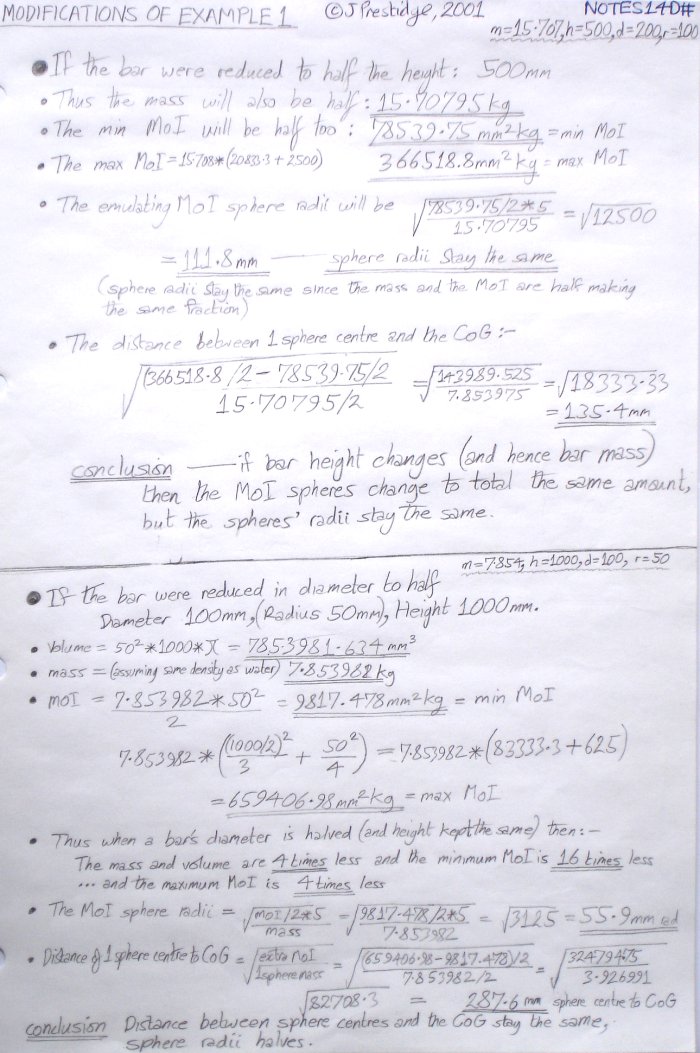 MODIFICATIONS OF EXAMPLE 1 ©J Prestidge, 2001 NOTES14D#
m=15.707,h=500,d=200,r=100
● If the bar were reduced to half the height: 500mm
• Thus the mass will also be half: 15.70795kg
• The min MoI will be half too: 78539.75 mm²kg = min MoI
• The max MoI = 15.708*(20833.3 + 2500) 366518.8mm²kg = max MoI
• The emulating MoI sphere radii will be √(78539.75/2*5 / 15.70795) = √12500
= 111.8mm —— sphere radii stay the same
(sphere radii stay the same since the mass and the MoI are half making
the same fraction)
• The distance between 1 sphere centre and the CoG :-
√((366518.8/2 - 78539.75/2 / 15.70795/2) = √(143989.525 / 7.853975) = √18333.33
= 135.4mm
conclusion —— if bar height changes (and hence bar mass)
then the MoI spheres change to total the same amount,
but the spheres' radii stay the same.
m=7.854, h=1000, d=100, r=50
● If the bar were reduced in diameter to half
Diameter 100mm, (Radius 50mm), Height 1000mm.
• Volume = 50²*1000*π = 7853981.634 mm³
• mass = (assuming same density as water) 7.853982kg
• MoI = 7.853982*50² / 2 = 9817.478mm²kg = min MoI
7.853982*((1000/2)² / 3 + 50² / 4) = 7.853982*(83333.3+625)
= 659406.98mm²kg = max MoI
• Thus when a bar's diameter is halved (and height kept the same) then:-
The mass and volume are 4 times less and the minimum MoI is 16 times less
... and the maximum MoI is 4 times less
• The MoI sphere radii = √(MoI/2*5 / mass) = √(9817.478/2*5 / 7.853982) = √3125 = 55.9mm rad
• Distance of 1 sphere centre to CoG = √(extra MoI / 1 sphere mass) = √((659406.98-9817.478)/2 / 7.853982/2) = √(324794.75 / 3.926991)
√82708.3 = 287.6 mm sphere centre to CoG
conclusion Distance between sphere centres and the CoG stay the same,
sphere radii halves.